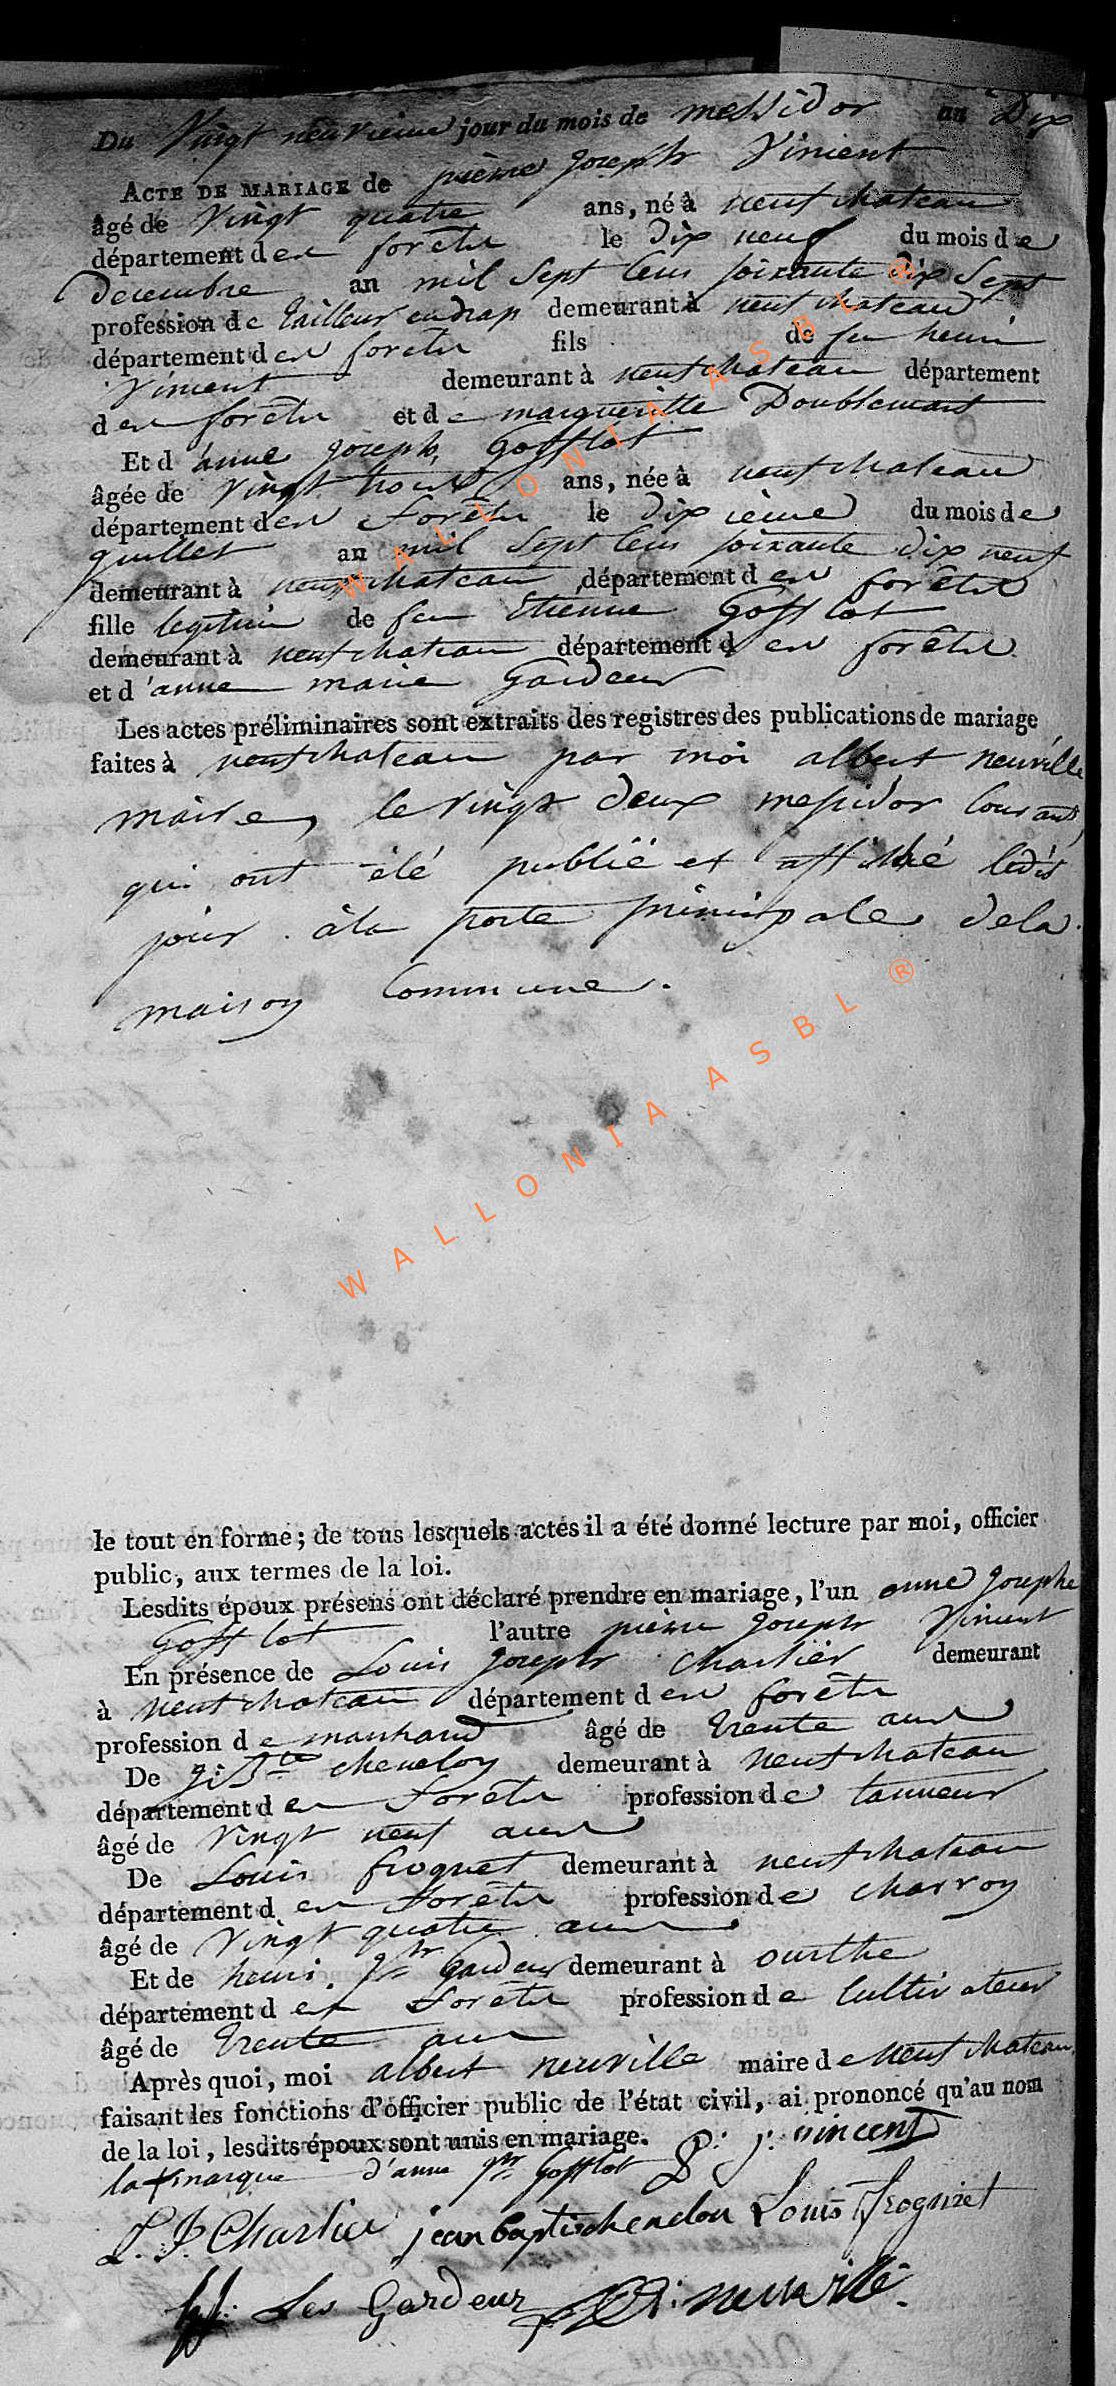 Du Vingt neuvieme jour du mois de messidor an Dix
ACTE DE MARIAGE de pierre Joseph Vincent
âgé de Vingt quatre ans, né à neufchateau
département des forêts le dix neuf du mois de
decembre an mil Sept Cens soixante dix Sept
profession de tailleur en drap demeurant à neufchateau
département des forêts fils de feu henri
Vincent demeurant à neufchateau département
des forêts et de margueritte Doublemart
Et d'anne Joseph, Gofflot
âgée de Vingt trois ans, née à neufchateau
département des Forêts le dixieme du mois de
Juillet an mil Sept Cens soixante dix neuf
demeurant à neufchateau département des forêts
fille legitime de feu Etienne Gofflot
demeurant à neufchateau département des forêts
et d'anne marie Gardeur
Les actes préliminaires sont extraits des registres des publications de mariage
faites à neufchateau par moi albert neuville
maire, le vingt deux messidor Courant,
qui ont été publié et affiché ledit
jour à la porte principale de la
maison Commune.
le tout en forme; de tous lesquels actes il a été donné lecture par moi, officier
public, aux termes de la loi.
Lesdits époux présens ont déclaré prendre en mariage, l'un anne Josephe
Gofflot l'autre pierre Joseph Vincent
En présence de Louis Joseph Charlier demeurant
à neufchateau département des forêts
profession de marchand âgé de trente ans
De J: Bte chenelon demeurant à Neufchateau
département des Forêts profession de tanneur
âgé de Vingt neuf ans
De Louis frognet demeurant à neufchateau
département des Forêts profession de charron
âgé de Vingt quatre ans
Et de henri Jh Gardeur demeurant à ourthe
département des Forêts profession de Cultivateur
âgé de trente ans
Après quoi, moi albert neuville maire de Neufchateau
faisant les fonctions d'officier public de l'état civil, ai prononcé qu'au nom
de la loi, lesdits époux sont unis en mariage. P: J: vincent
la + marque d'anne Jh Gofflot
L. J. Charlier jean baptis chenelon Louis Frognet
hj: Les Gardeur A: neuville.
WALLONIA ASBL ®
WALLONIA ASBL ®